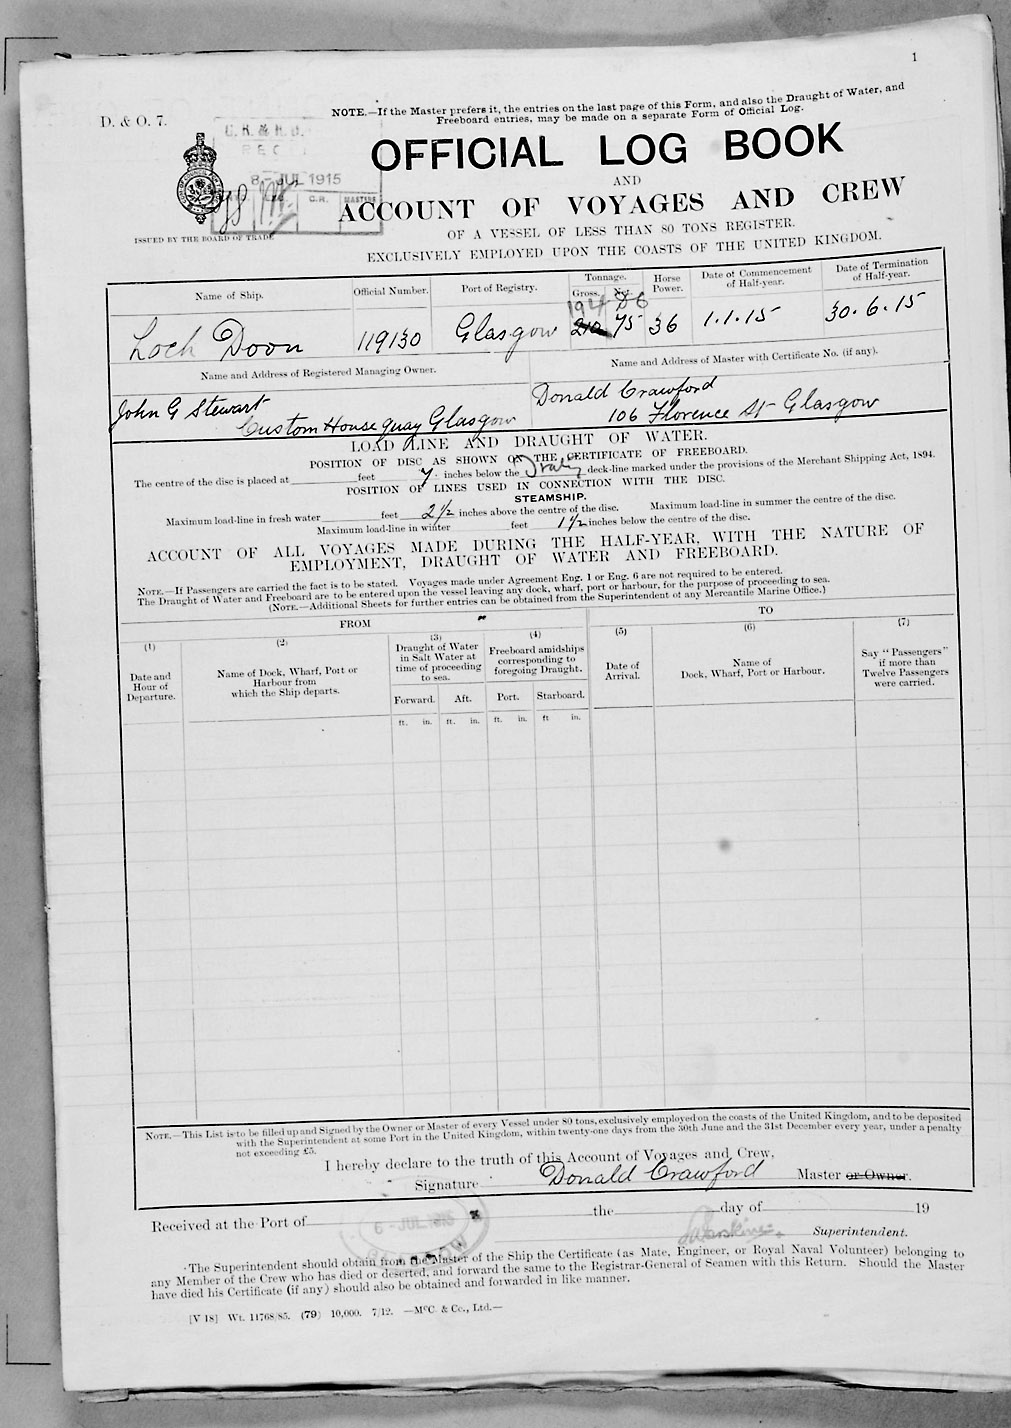 1
D. & O. 7.
NOTE.—If the Master prefers it, the entries on the last page of this Form, and also the Draught of Water, and
Freeboard entries, may be made on a separate Form of Official Log.
8 - JUL 1915
C.R. MASTERS
ISSUED BY THE BOARD OF TRADE
OFFICIAL LOG BOOK
AND
ACCOUNT OF VOYAGES AND CREW
OF A VESSEL OF LESS THAN 80 TONS REGISTER.
EXCLUSIVELY EMPLOYED UPON THE COASTS OF THE UNITED KINGDOM.
Name of Ship. Official Number. Port of Registry. Tonnage. Gross. Net. Horse Power. Date of Commencement of Half-year. Date of Termination of Half-year.
194 86
Loch Doon 119130 Glasgow 210 75 36 1.1.15 30.6.15
Name and Address of Registered Managing Owner. Name and Address of Master with Certificate No. (if any).
John G Stewart Donald Crawford
Custom House quay Glasgow 106 Florence St Glasgow
LOAD LINE AND DRAUGHT OF WATER.
POSITION OF DISC AS SHOWN ON THE CERTIFICATE OF FREEBOARD.
The centre of the disc is placed at feet 7 inches below the deck-line marked under the provisions of the Merchant Shipping Act, 1894.
POSITION OF LINES USED IN CONNECTION WITH THE DISC.
STEAMSHIP.
Maximum load-line in fresh water feet 2½ inches above the centre of the disc. Maximum load-line in summer the centre of the disc.
Maximum load-line in winter feet 1½ inches below the centre of the disc.
ACCOUNT OF ALL VOYAGES MADE DURING THE HALF-YEAR, WITH THE NATURE OF
EMPLOYMENT, DRAUGHT OF WATER AND FREEBOARD.
NOTE.—If Passengers are carried the fact is to be stated. Voyages made under Agreement Eng. 1 or Eng. 6 are not required to be entered.
The Draught of Water and Freeboard are to be entered upon the vessel leaving any dock, wharf, port or harbour, for the purpose of proceeding to sea.
(NOTE.—Additional Sheets for further entries can be obtained from the Superintendent of any Mercantile Marine Office.)
FROM TO
(1) (2) (3) (4) (5) (6) (7)
Date and Hour of Departure.
Name of Dock, Wharf, Port or Harbour from which the Ship departs.
Draught of Water in Salt Water at time of proceeding to sea.
Freeboard amidships corresponding to foregoing Draught.
Date of Arrival.
Name of Dock, Wharf, Port or Harbour.
Say "Passengers" if more than Twelve Passengers were carried.
Forward. Aft. Port. Starboard.
ft. in. ft. in. ft. in. ft in.
NOTE.—This List is to be filled up and Signed by the Owner or Master of every Vessel under 80 tons, exclusively employed on the coasts of the United Kingdom, and to be deposited
with the Superintendent at some Port in the United Kingdom, within twenty-one days from the 30th June and the 31st December every year, under a penalty
not exceeding £5.
I hereby declare to the truth of this Account of Voyages and Crew,
Signature Donald Crawford Master or Owner.
Received at the Port of the day of 19
6 - JUL 1915
Superintendent.
The Superintendent should obtain from the Master of the Ship the Certificate (as Mate, Engineer, or Royal Naval Volunteer) belonging to
any Member of the Crew who has died or deserted, and forward the same to the Registrar-General of Seamen with this Return. Should the Master
have died his Certificate (if any) should also be obtained and forwarded in like manner.
[V 18] Wt. 11768/85. (79) 10,000. 7/12. —McC. & Co., Ltd.—